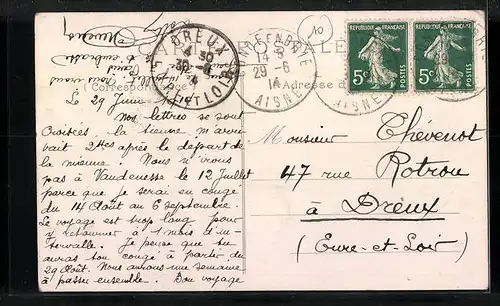 CARTE POSTALE
Correspondance
Adresse
DREUX
4 30
30 -6
14
EURE ET LOIR
EN BRIE
14
29 -6
14
AISNE
AISNE
10
RÉPUBLIQUE FRANÇAISE
5c POSTES
RÉPUBLIQUE FRANÇAISE
5c POSTES
Le 29 Juin
Nos lettres se sont
croisées, la tienne m'arri
vait 2 hes après le départ de
la mienne. Nous n'irons
pas à Vaudenesse le 12 Juillet
parce que je serai en congé
du 14 Août au 6 septembre.
Le voyage est trop long pour
y retourner à 1 mois d'in-
tervalle. Je pense que tu
auras ton congé à partir du
29 Août. Nous aurons une semaine
à passer ensemble. Bon voyage
Monsieur Thévenot
47 rue Rotrou
à Dreux
(Eure-et-Loir)